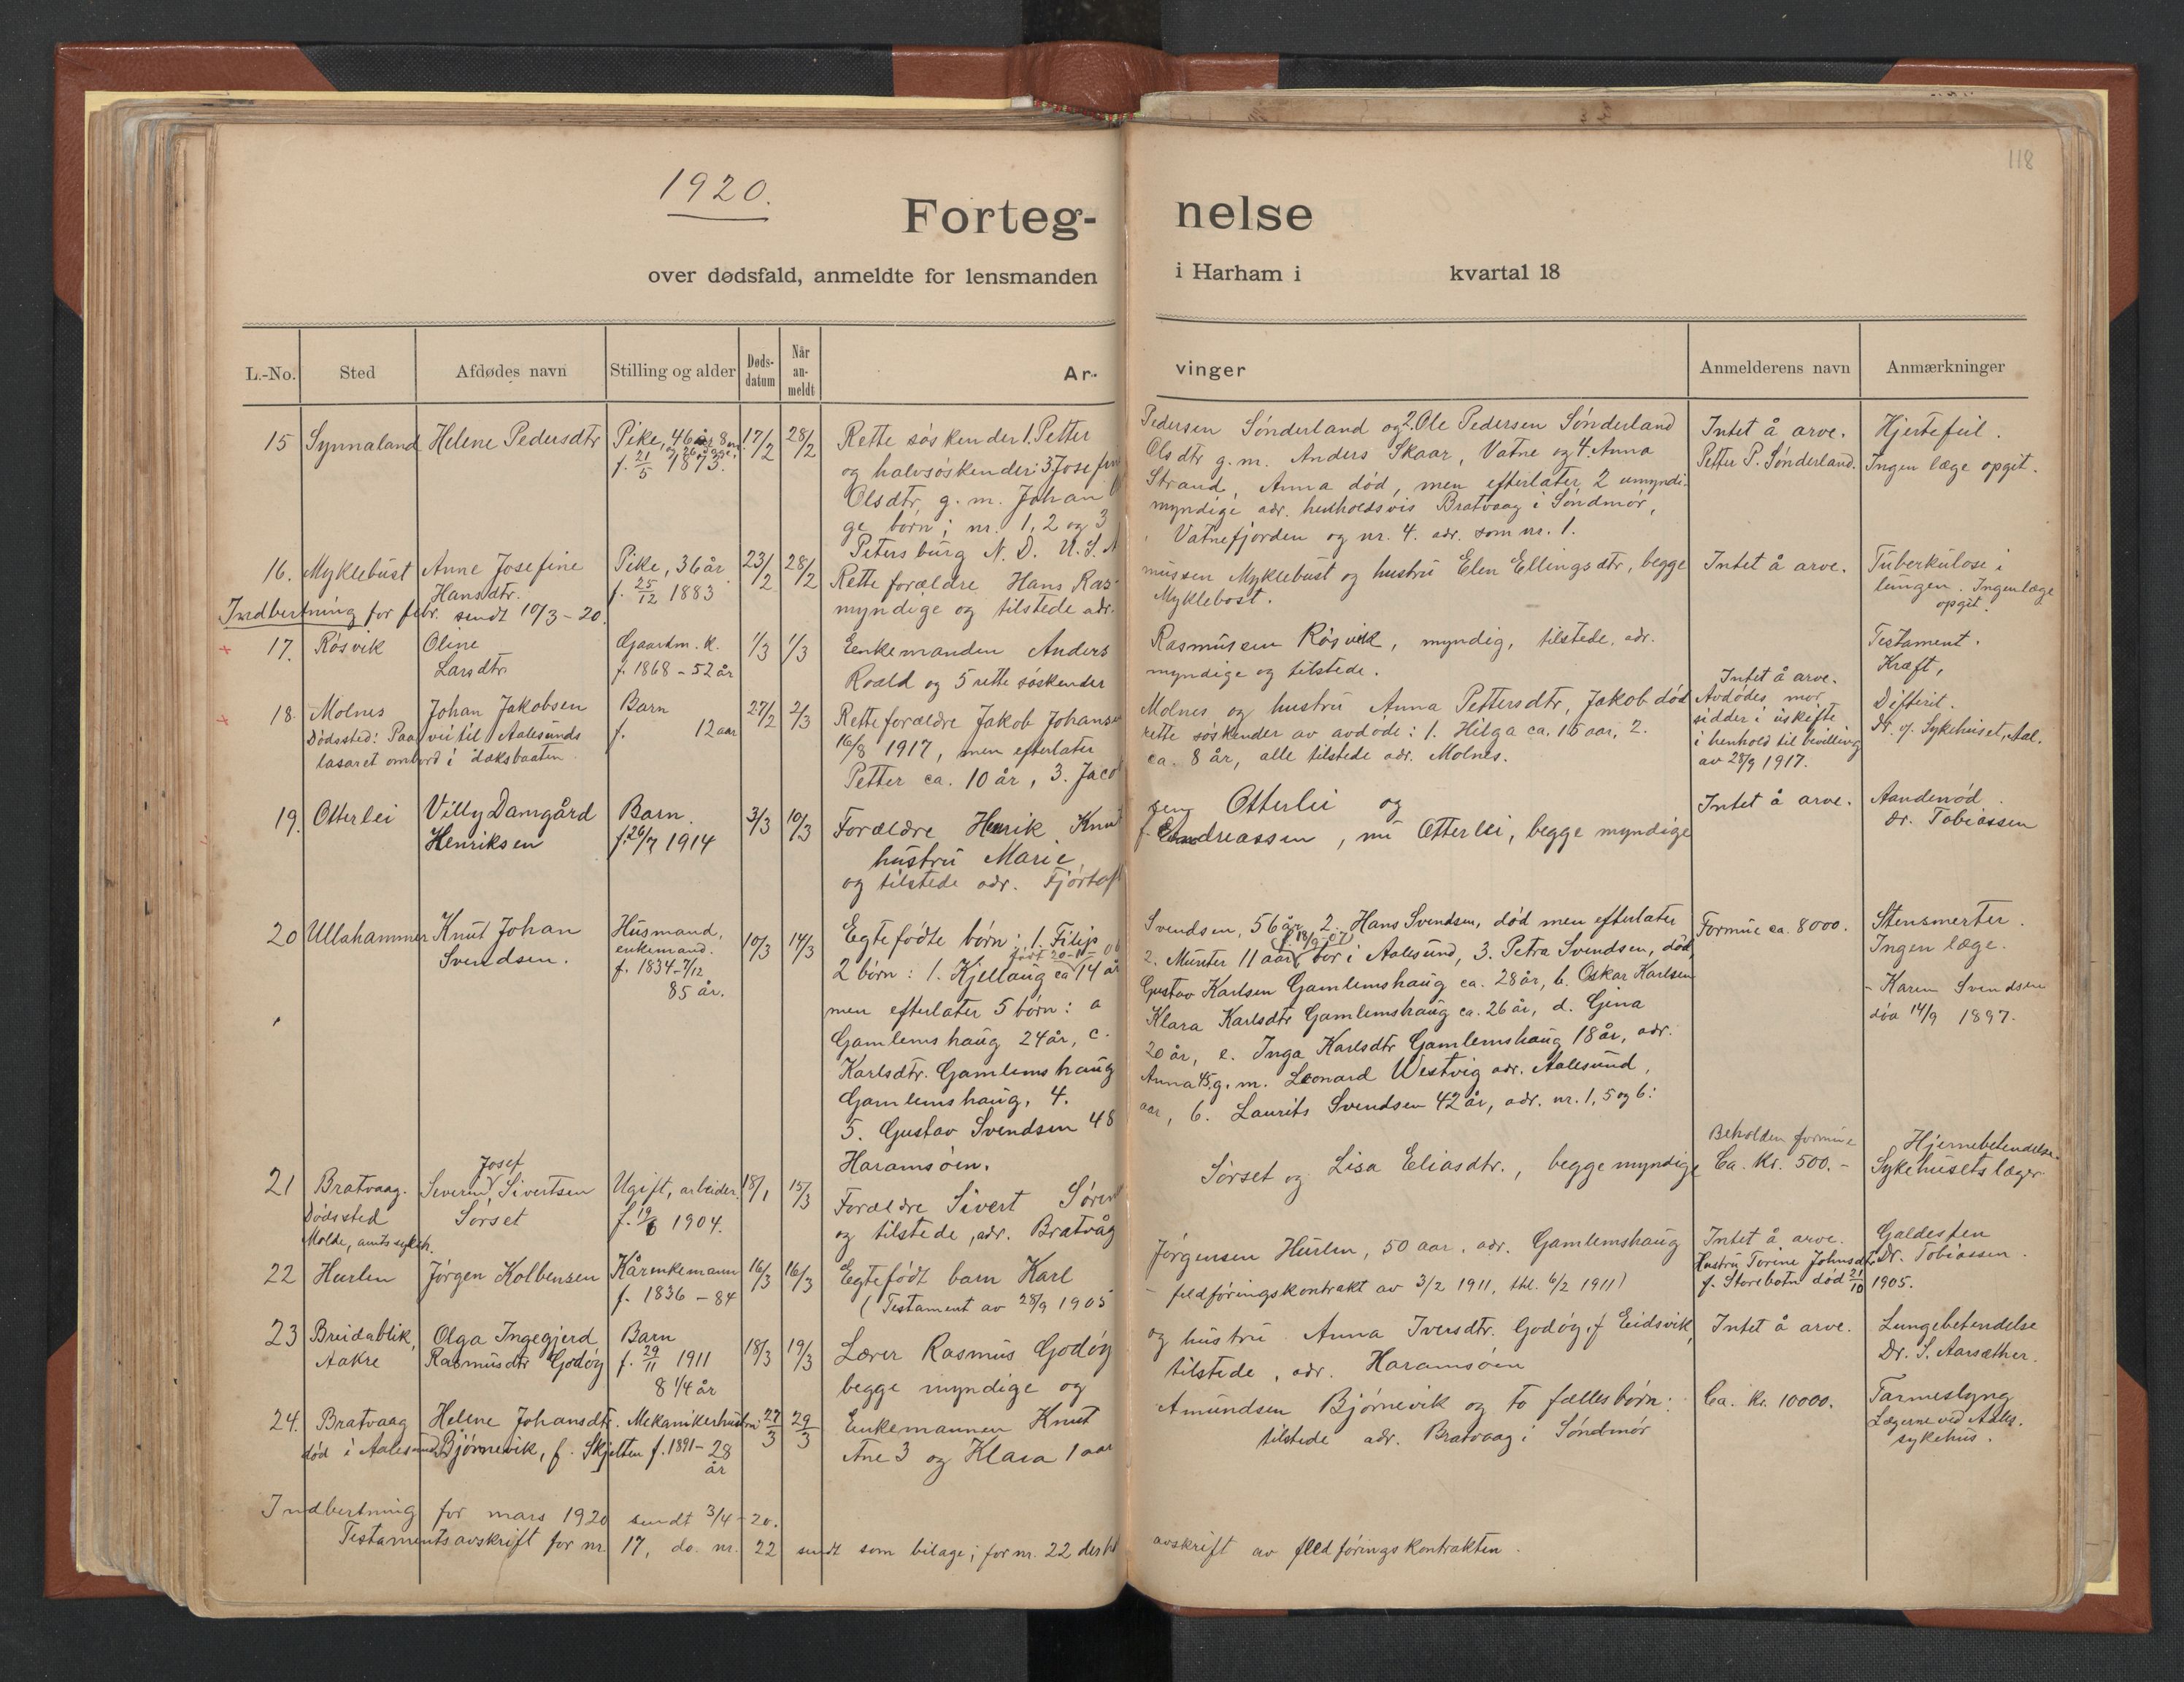 118
1920.
Forteg-nelse
over dødsfald, anmeldte for lensmanden i Harham i kvartal 18
L.-No. Sted Afdødes navn Stilling og alder Døds-datum Når an-meldt Ar-vinger Anmelderens navn Anmærkninger
15 Synnaland Helene Pedersdtr Pike, 46 år 8 m. 17/2 28/2 Rette søskender 1. Petter Pedersen Sønderland og 2. Ole Pedersen Sønderland Intet å arve. Hjertefeil.
f. 21/5 1873. og halvsøskender: 3 Josefine Olsdtr g.m. Anders Skaar, Vatne og 4. Anna Petter P. Sønderland. Ingen læge opgit.
Olsdtr. g. m. Johan Strand, Anna død, men efterlater 2 umyndi-
ge børn; nr. 1, 2 og 3 myndige adr. henholdsvis Bratvaag i Søndmør,
Petersburg N. D. U.S.A Vatnefjorden og nr. 4. adr. som nr. 1.
16. Myklebust Anne Josefine Pike, 36 år 23/2 28/2 Rette forældre Hans Ras-mussen Myklebust og hustru Elen Ellingsdtr, begge Intet å arve. Tuberkulose i
Hansdtr. f. 25/12 1883 myndige og tilstede adr. Myklebost. lungen. Ingen læge
opgit.
Indberetning for febr. sendt 10/3-20.
17. Røsvik Oline Gaardm. k. 1/3 1/3 Enkemanden Anders Rasmussen Røsvik, myndig, tilstede, adr. Testament.
Larsdtr. f. 1868 - 52 år Roald og 5 rette søskender myndige og tilstede. Intet å arve. Kræft,
18. Molnes Johan Jakobsen Barn 27/2 2/3 Rette forældre Jakob Johansen Molnes og hustru Anna Pettersdtr, Jakob død Avdødes mor Difterit.
Dødssted: Paa vei til Aalesunds f. 12 aar 16/8 1917, men efterlater rette søskender av avdøde: 1. Hilga ca. 15 aar, 2. sidder i uskifte St. og. Sykehuset, Aal.
lasaret ombord i daksbaaten. Petter ca. 10 år, 3. Jacob ca. 8 år, alle tilstede adr. Molnes. i henhold til bevilling
av 28/9 1917.
19. Otterlei Villy Damgård Barn. 3/3 10/3 Forældre Henrik Knud sen Otterlei og Intet å arve. Aandenød.
Henriksen f. 26/7 1914 hustru Marie f. Andreassen, nu Otterlei, begge myndige dr. Tobiassen
og tilstede adr. Fjørtoft
20 Ullahammer Knut Johan Husmand, 10/3 14/3 Egtefødte børn: 1. Filip Svendsen, 56 år, 2. Hans Svendsen, død men efterlater Formue ca. 8000. Stensmerter.
Svendsen. enkemand. født 20-11-06 f. 18/9-07
f. 1834-7/12 2 børn: 1. Kjellaug ca 14 år 2. Munter 11 aar bor i Aalesund, 3. Petra Svendsen, død, Ingen læge.
85 år. men efterlater 5 børn: a Gustav Karlsen Gamlemshaug ca. 28 år, b. Oskar Karlsen - Karen Svendsen
Gamlemshaug 24 år, c. Klara Karlsdtr Gamlemshaug ca. 26 år, d. Gina død 14/9 1897.
Karlsdtr. Gamlemshaug 20 år, e. Inga Karlsdtr Gamlemshaug 18 år, adr.
Gamlemshaug, 4. Anna 45, g. m. Leonard Westvig adr. Aalesund,
5. Gustav Svendsen 48 aar, 6. Laurits Svendsen 42 år, adr. nr. 1, 5 og 6:
Haramsøen.
21 Bratvaag. Severin Josef Sivertsen Ugift, arbeider. 18/1 15/3 Forældre Sivert Søren Sørset og Lisa Eliasdtr., begge myndige Beholden formue Hjernebetendelse.
Dødssted Sørset f. 19/6 1904. og tilstede, adr. Bratvåg Ca. Kr. 500.- Sykehusets læger
Molde, amts sykeh.
22 Hurlen Jørgen Kolbensen Kårenkemann 16/3 16/3 Egtefødt barn Karl Jørgensen Hurlen, 50 aar. adr. Gamlemshaug Intet å arve. Galdesten
f. 1836 - 84 (Testament av 28/9 1905 - feldføringskontrakt av 3/2 1911, thl. 6/2 1911) Hustru Torine Johnsdtr Dr. Tobiassen.
f. Storebotn død 21/10 1905.
23 Breidablik, Olga Ingegjerd Barn 18/3 19/3 Lærer Rasmus Godøy og hustru Anna Iversdtr. Godøy, f. Eidsvik, Intet å arve. Lungebetendelse
Aakre Rasmusdtr Godøy f. 29/11 1911 begge myndige og tilstede, adr. Haramsøen Dr. S. Aarsæther.
8 1/4 år
24. Bratvaag Helene Johansdtr. Mekanikerhustru 27/3 29/3 Enkemannen Knut Amundsen Bjørnevik og to fælles børn: Ca. kr. 10000. Tarmeslyng
død i Aalesund Bjørnevik, f. Skjelten f. 1891 - 28 år Ane 3 og Klara 1 aar tilstede adr. Bratvaag i Søndmør Lægerne ved Aales.
sykehus.
Indberetning for mars 1920 sendt 3/4-20.
Testamentsavskrift for nr. 17, do. nr. 22 sendt som bilage; for nr. 22 dertil avskrift av fledføringskontrakten.